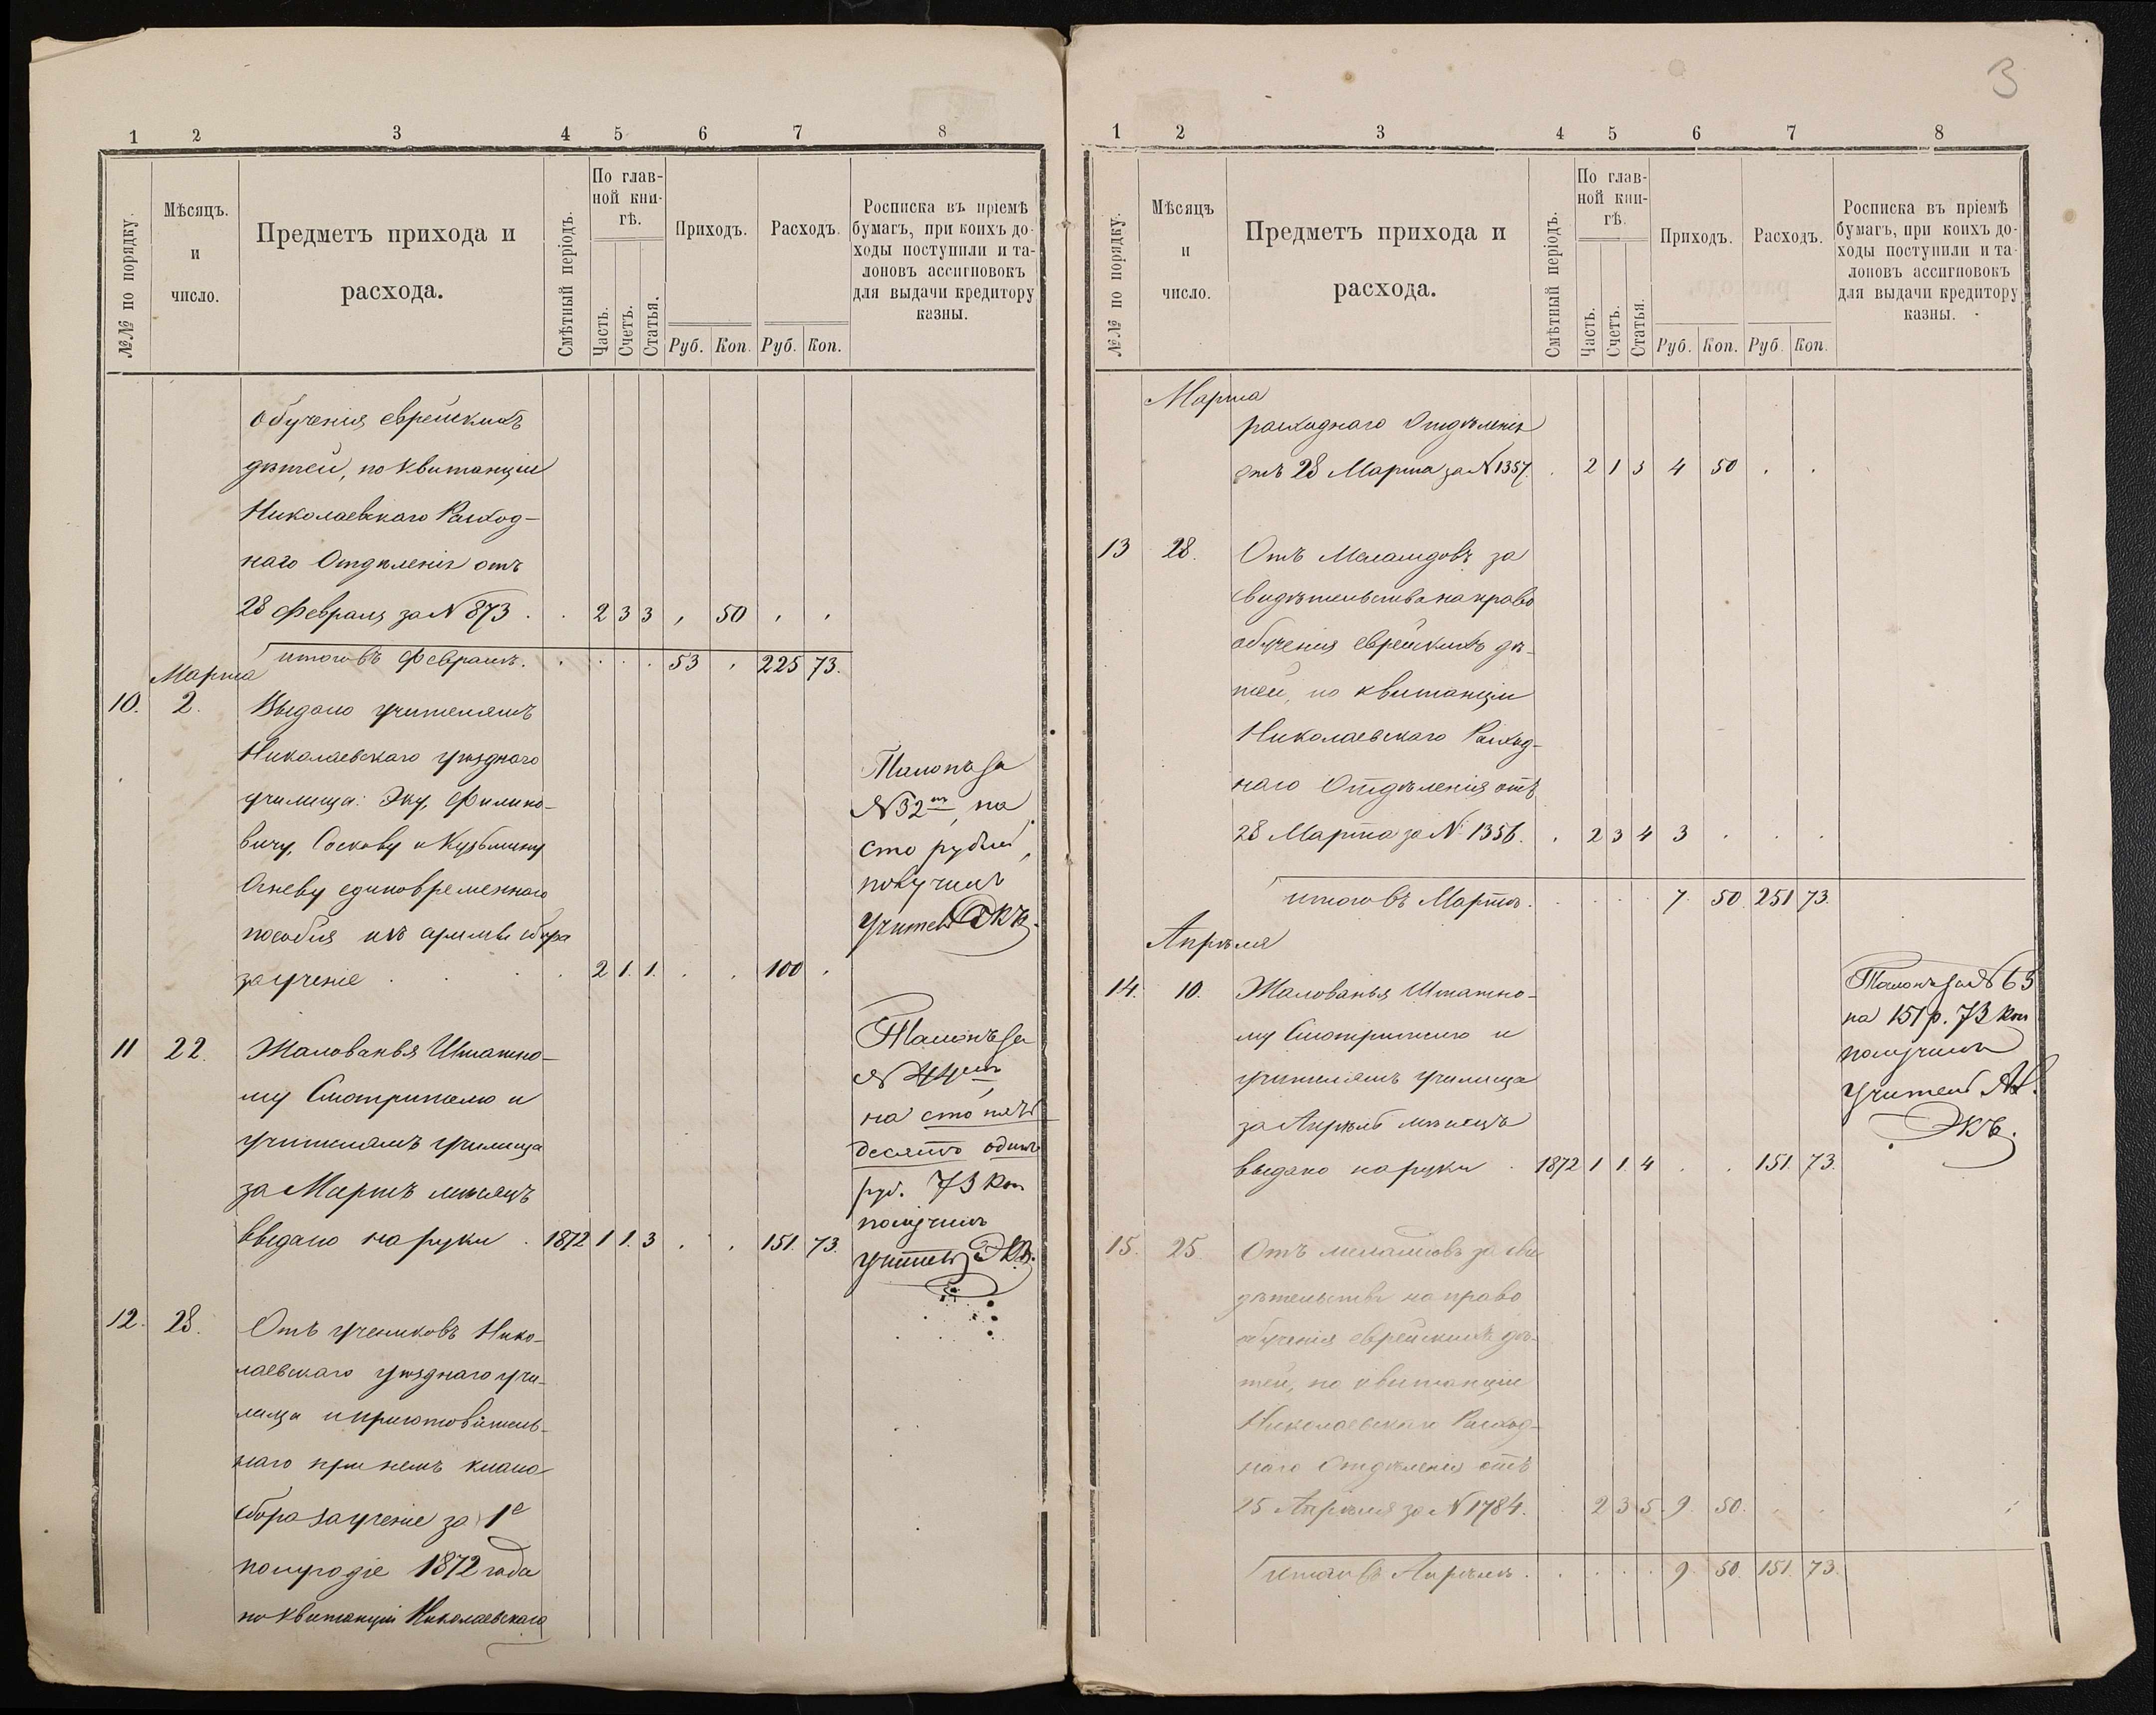 1 2 3 4 5 6 7 8
№№ по порядку.
Мѣсяцъ.
и
число.
Предметъ прихода и
расхода.
Смѣтный періодъ.
По глав-
ной кни-
гѣ.
Часть.
Счетъ.
Статья.
Приходъ.
Руб. Коп.
Расходъ.
Руб. Коп.
Росписка въ пріемѣ
бумагъ, при коихъ до-
ходы поступили и та-
лоновъ ассигновокъ
для выдачи кредитору
казны.
обученія еврейскихъ
дѣтей, по квитанціи
Николаевскаго Расход-
наго Отдѣленія отъ
28 Февраля за N 873 . . 2 3 3 , 50 , ,
итого въ Февралѣ. . . . . 53 . 225 73.
Марта
10. 2. Выдано учителямъ
Николаевскаго уѣзднаго
училища: Эку, Филипо-
вичу, Соскову и Кузьмину
Огневу единовременнаго
пособія изъ суммы сбора
за ученіе . . . 2 1. 1. . . 100 .
Талонъ за
N 32 на
сто рублей,
получилъ
Учитель Экъ.
11 22. Жалованья Штатно-
му Смотрителю и
учителямъ училища
за Мартъ мѣсяцъ
выдано на руки . 1872 1 1. 3 . . 151. 73.
Талонъ за
N 44
на сто пять
десятъ одинъ
руб. 73 коп
получилъ
Учитель Экъ.
12. 28. Отъ учениковъ Нико-
лаевскаго уѣзднаго учи-
лища и приготовитель-
наго при немъ класа
сбора за ученіе за 1е
полугодіе 1872 года
по квитанціи Николаевскаго
3
1 2 3 4 5 6 7 8
№№ по порядку.
Мѣсяцъ
и
число.
Предметъ прихода и
расхода.
Смѣтный періодъ.
По глав-
ной кни-
гѣ.
Часть.
Счетъ.
Статья.
Приходъ.
Руб. Коп.
Расходъ.
Руб. Коп.
Росписка въ пріемѣ
бумагъ, при коихъ до-
ходы поступили и та-
лоновъ ассигновокъ
для выдачи кредитору
казны.
Марта
расходнаго Отдѣленія
отъ 28 Марта за N 1357. . 2 1 3 4 50 . .
13 28. Отъ Меламдовъ за
свидѣтельства на право
обученія еврейскихъ дѣ-
тей, по квитанціи
Николаевскаго Расход-
наго Отдѣленія отъ
28 Марта за N 1356. . 2 3 4 3 . . .
итого въ Мартѣ. . . . . 7. 50. 251 73.
Апрѣля
14. 10. Жалованья Штатно-
му Смотрителю и
учителямъ училища
за Апрѣль мѣсяцъ
выдано на руки . 1872 1 1. 4 . . 151. 73.
Талонъ за N 63
на 151 р. 73 коп
получилъ
Учитель
Экъ.
15. 25. Отъ меламдовъ за сви
дѣтельства на право
обученія еврейскихъ дѣ-
тей, по квитанціи
Николаевскаго Расход-
наго Отдѣленія отъ
25 Апрѣля за N 1784. . 2 3 5. 9. 50. . .
итого въ Апрѣлѣ. . . . . 9. 50. 151. 73.